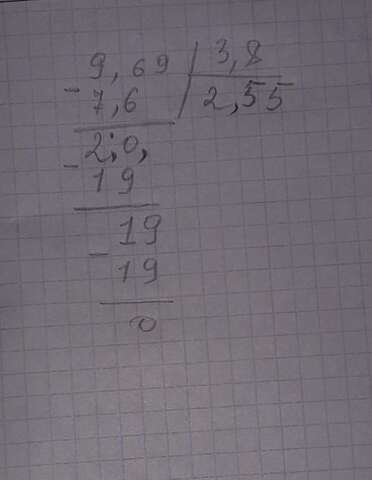 9,69 | 3,8
- 7,6 | 2,55
2,0,
- 19
19
- 19
0